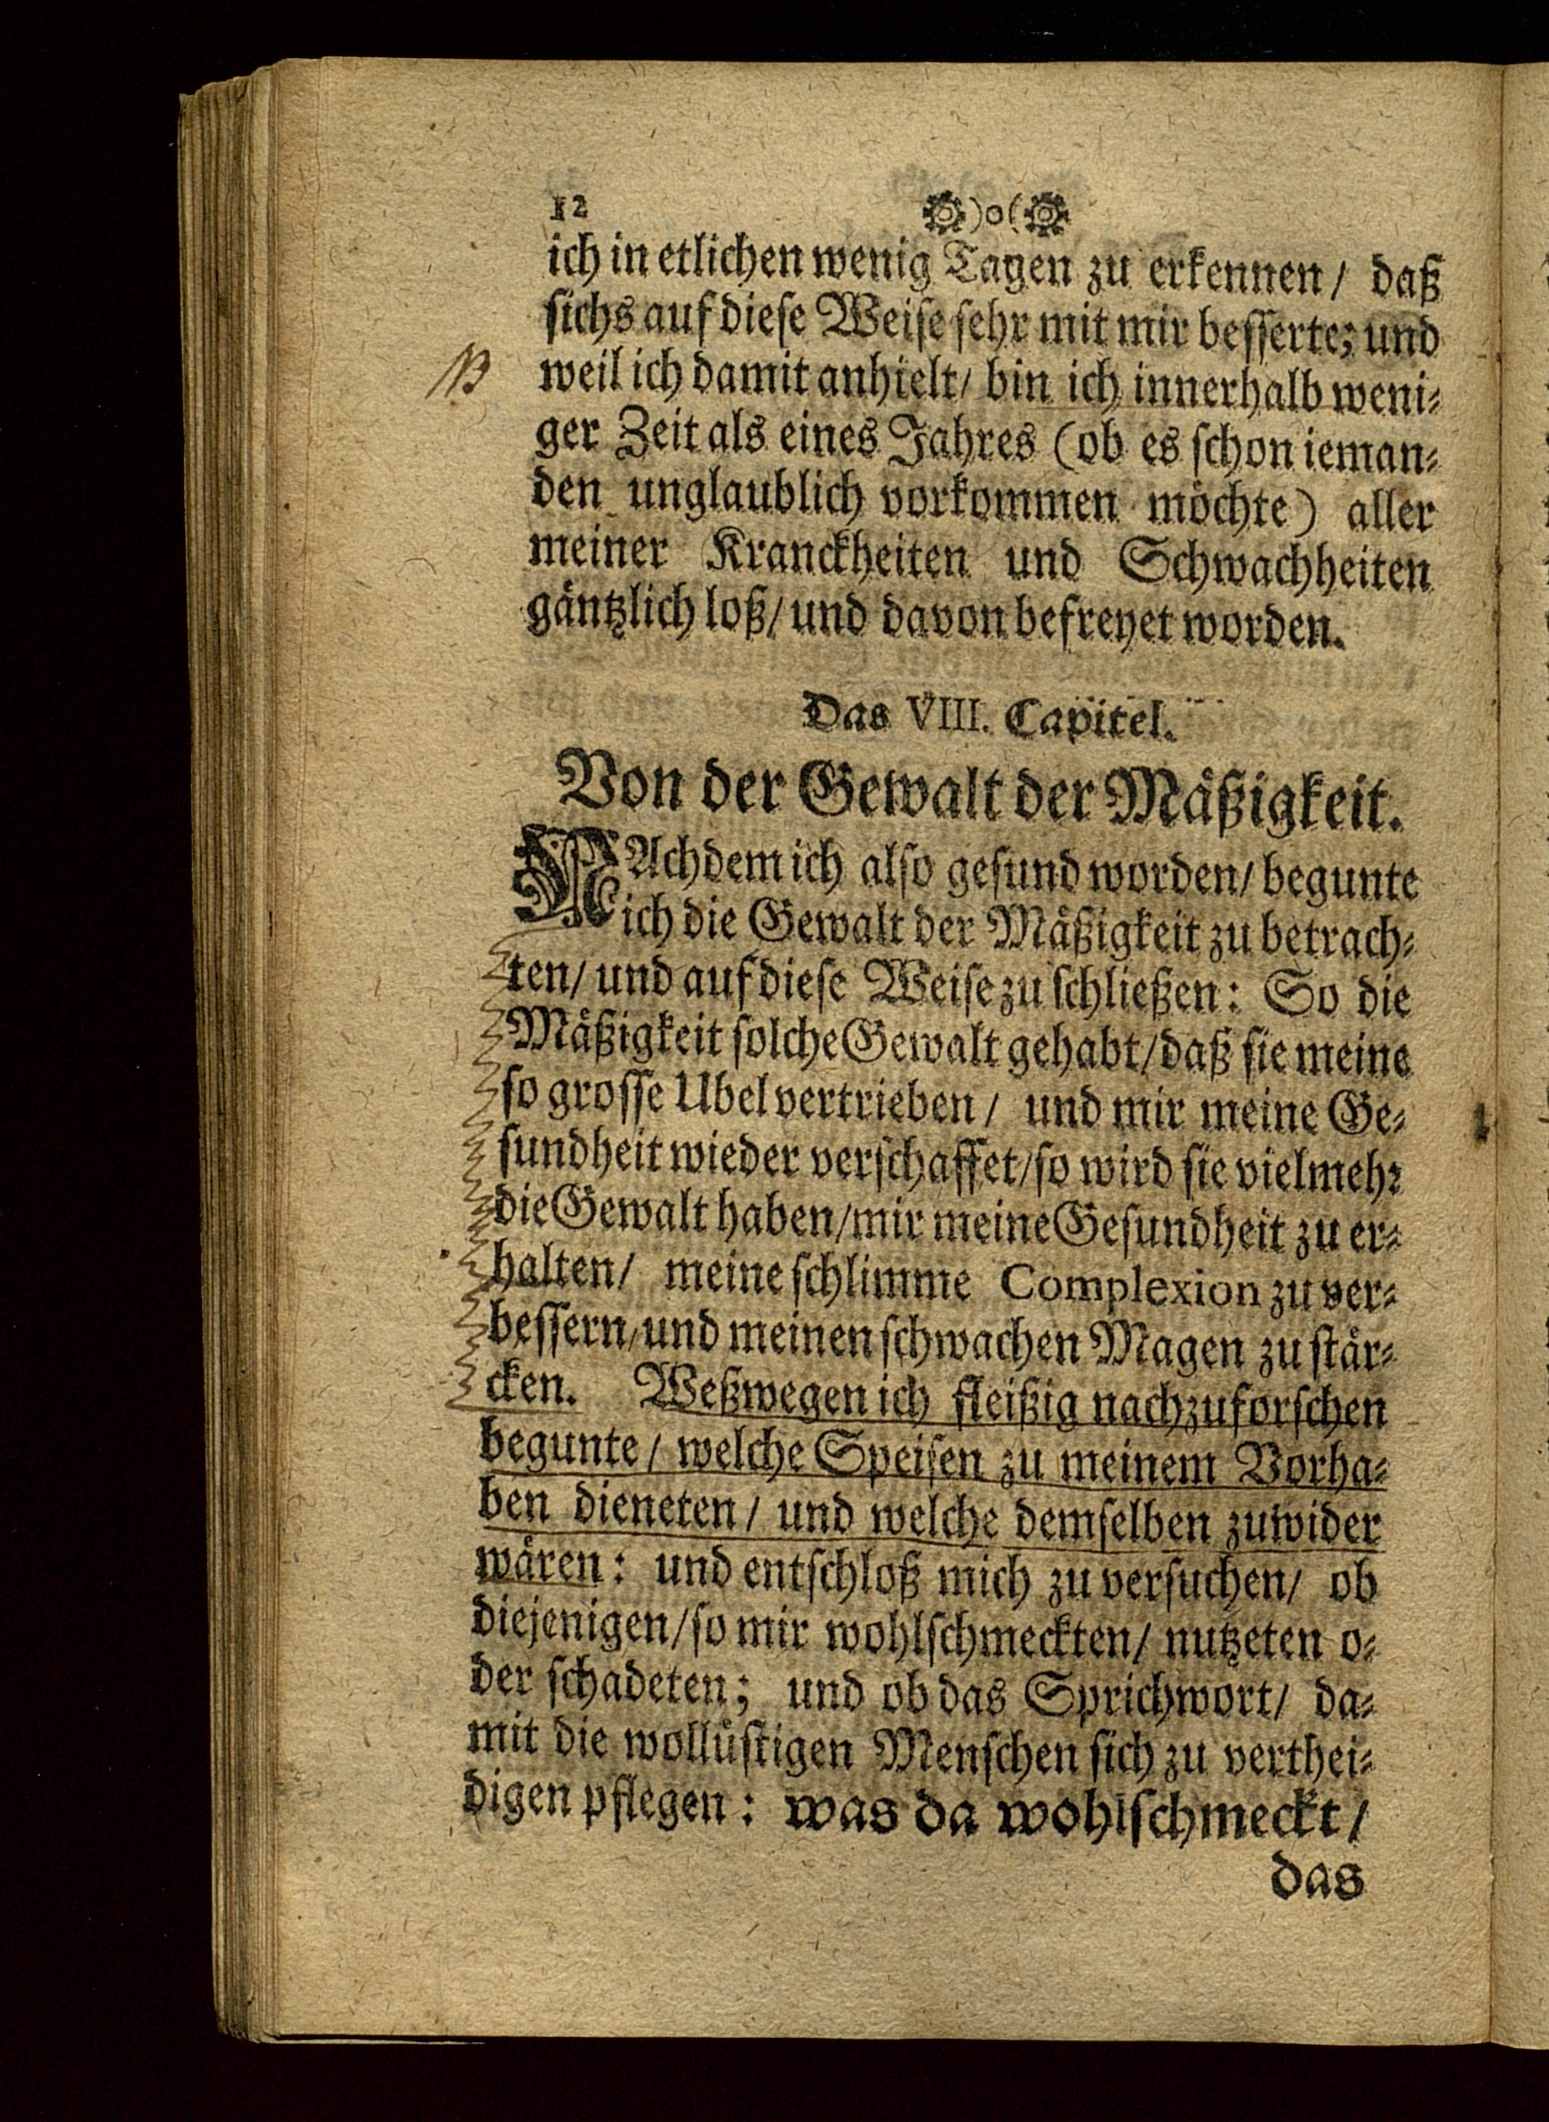 12 )o(
ich in etlichen wenig Tagen zu erkennen / daß
sichs auf diese Weise sehr mit mir besserte; und
NB weil ich damit anhielt / bin ich innerhalb weni⸗
ger Zeit als eines Jahres (ob es schon ieman⸗
den unglaublich vorkommen möchte) aller
meiner Kranckheiten und Schwachheiten
gäntzlich loß / und davon befreyet worden.
Das VIII. Capitel.
Von der Gewalt der Mäßigkeit.
NAchdem ich also gesund worden / begunte
ich die Gewalt der Mäßigkeit zu betrach⸗
ten / und auf diese Weise zu schließen: So die
Mäßigkeit solche Gewalt gehabt / daß sie meine
so grosse Ubel vertrieben / und mir meine Ge⸗
sundheit wieder verschaffet / so wird sie vielmehr
die Gewalt haben / mir meine Gesundheit zu er⸗
halten / meine schlimme Complexion zu ver⸗
bessern / und meinen schwachen Magen zu stär⸗
cken. Weßwegen ich fleißig nachzuforschen
begunte / welche Speisen zu meinem Vorha⸗
ben dieneten / und welche demselben zuwider
wären: und entschloß mich zu versuchen / ob
diejenigen / so mir wohlschmeckten / nutzeten o⸗
der schadeten; und ob das Sprichwort / da⸗
mit die wollüstigen Menschen sich zu verthei⸗
digen pflegen: was da wohlschmeckt /
das